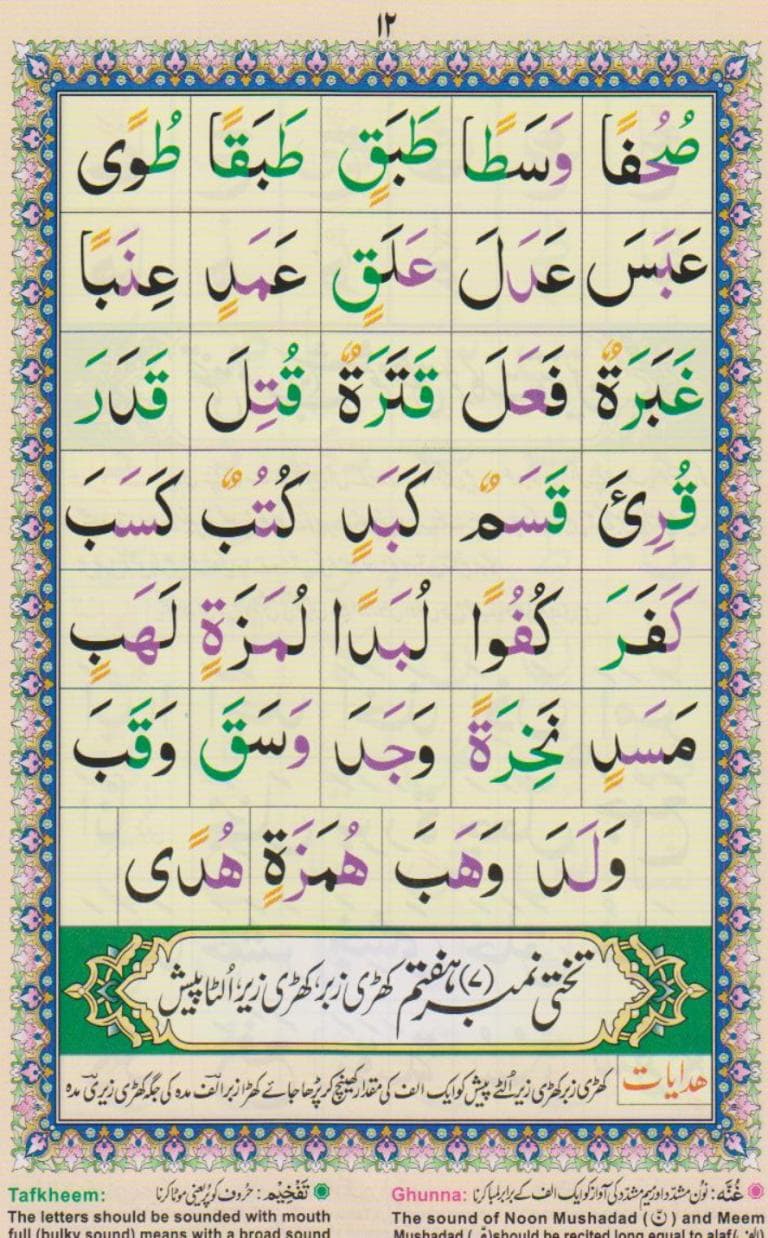 ١٢
صُحُفًا وَسَطًا طَبَقٍ طَبَقًا طُوًى
عَبَسَ عَدَلَ عَلَقٍ عَمَدٍ عِنَبًا
غَبَرَةٌ فَعَلَ قَتَرَةٌ قُتِلَ قَدَرَ
قُرِئَ قَسَمٌ كَبَدٍ كُتُبٌ كَسَبَ
كَفَرَ كُفُوًا لُبَدًا لُمَزَةٍ لَهَبٍ
مَسَدٍ نَخِرَةً وَجَدَ وَسَقَ وَقَبَ
وَلَدَ وَهَبَ هُمَزَةٍ هُدًى
تختی نمبر (۷) ہفتم کھڑی زبر، کھڑی زیر، اُلٹا پیش
ھدایات کھڑی زبر کھڑی زیر اُلٹے پیش کو ایک الف کی مقدار کھینچ کر پڑھا جائے کھڑا زبر الف مدہ کی جگہ کھڑی زیر یٓ مدہ
غُنَّه: نُون مشدّد اور میم مشدّد کی آواز کو ایک الف کے برابر لمبا کرنا
Ghunna:
The sound of Noon Mushadad (نّ) and Meem
Mushadad (مّ) should be recited long equal to alaf
تَفْخِيْم: حُروف کو پُر یعنی موٹا کرنا
Tafkheem:
The letters should be sounded with mouth
full (bulky sound) means with a broad sound